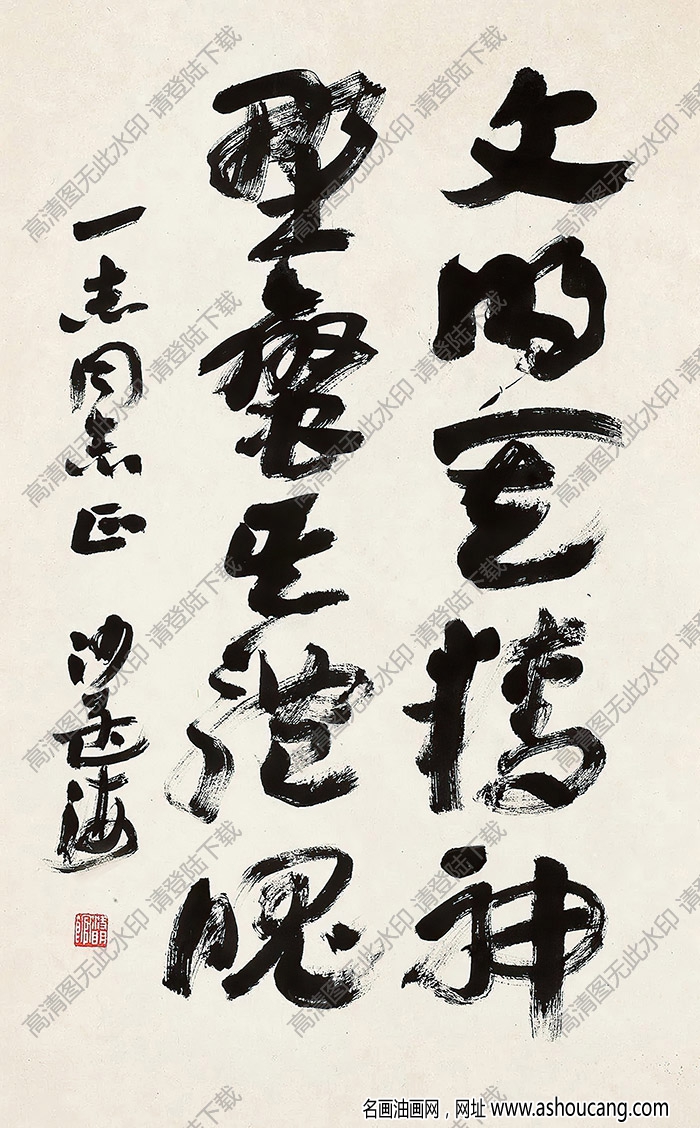 文明其精神
野蠻其體魄
一志同志正 沙孟海
高清图无此水印 请登陆下载
名画油画网，网址 www.ashoucang.com